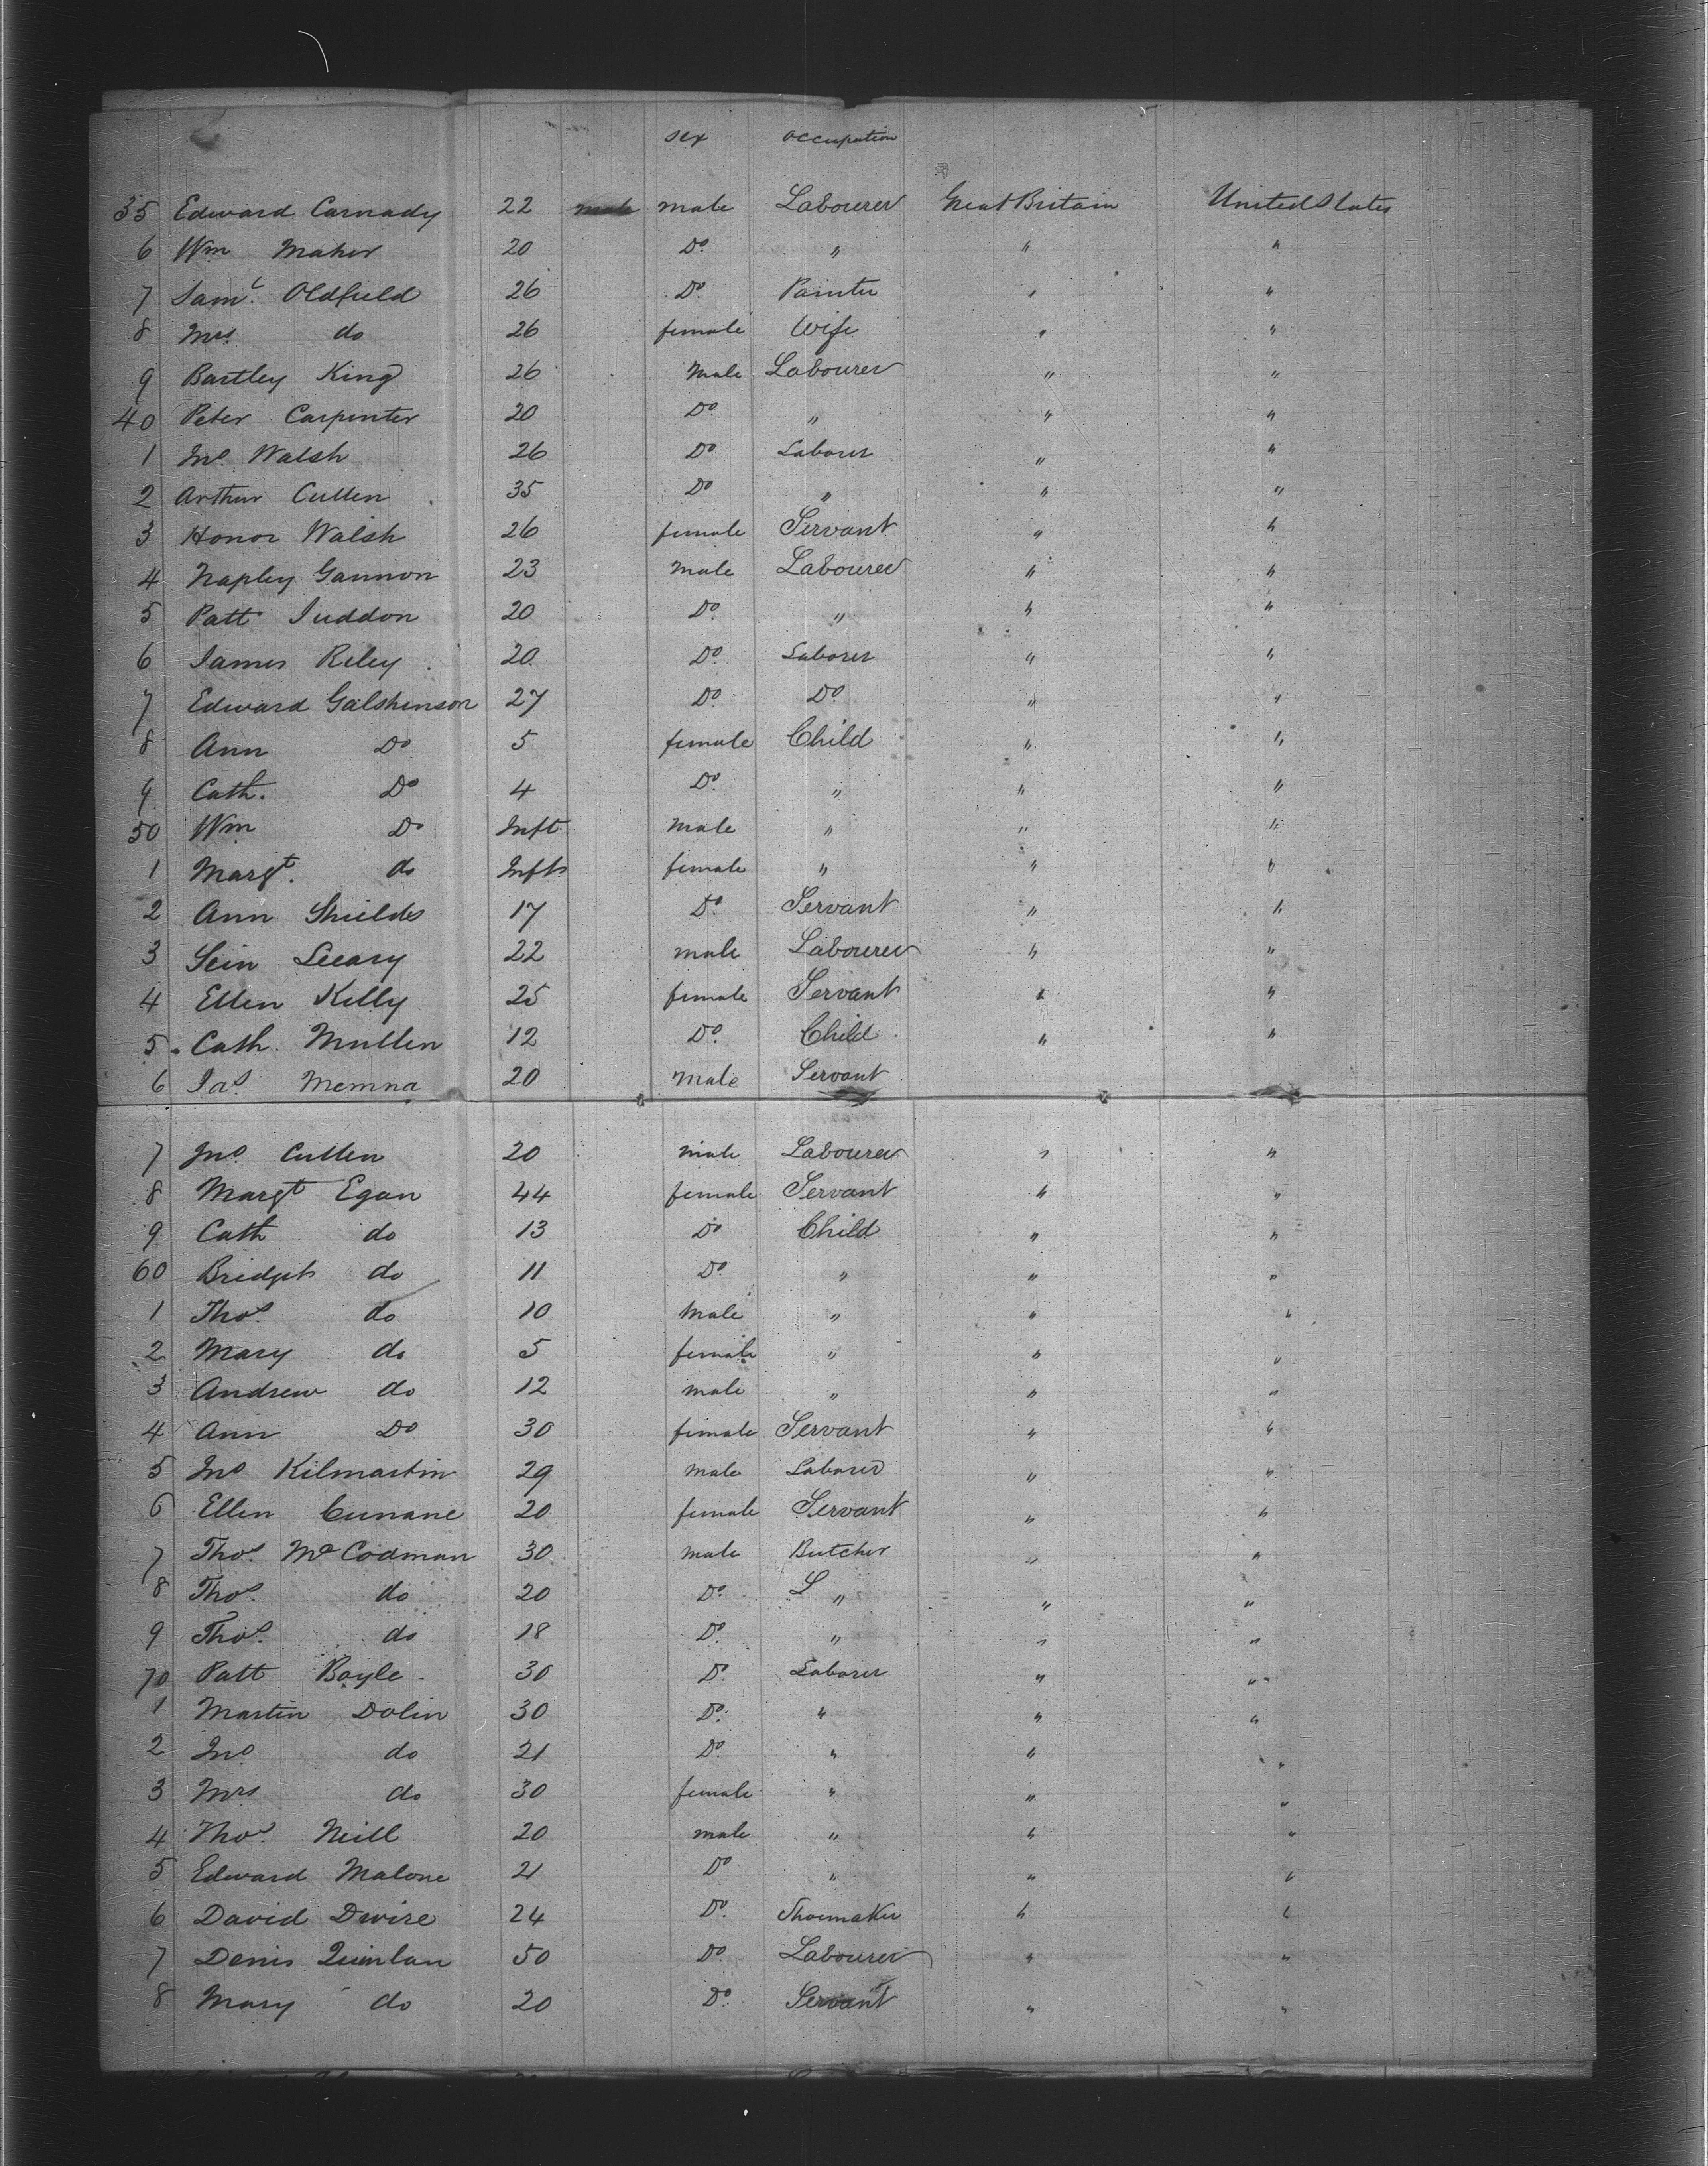 sex occupation
35 Edward Carnady 22 male male Labourer Great Britain United States
6 Wm Maher 20 Do. " " "
7 Saml. Oldfield 26 Do. Painter " "
8 Mrs. do 26 female Wife " "
9 Bartley King 26 Male Labourer " "
40 Peter Carpenter 20 Do. " " "
1 Jno. Walsh 26 Do Laborer " "
2 Arthur Cullen 35 Do " " "
3 Honor Walsh 26 female Servant " "
4 Napley Gannon 23 Male Labourer " "
5 Patt Juddon 20 Do. " " "
6 James Riley 20 Do. Laborer " "
7 Edward Galshenson 27 Do. Do. " "
8 Ann Do 5 female Child " "
9 Cath. Do 4 Do. " " "
50 Wm Do Inft. Male " " "
1 Margt. do Inft female " " "
2 Ann Shields 17 Do. Servant " "
3 Leeary 22 male Labourer " "
4 Ellen Kelly 25 female Servant " "
5 Cath. Mullen 12 Do. Child " "
6 Jas. Memna 20 Male Servant
7 Jno. Cullen 20 male Labourer " "
8 Margt Egan 44 female Servant " "
9 Cath do 13 Do Child " "
60 Bridget do 11 Do. " " "
1 Thos. do 10 Male " " "
2 Mary do 5 female " " "
3 Andrew do 12 male " " "
4 Ann Do 30 female Servant " "
5 Jno Kilmartin 29 Male Laborer " "
6 Ellen Cunane 20 female Servant " "
7 Thos. McCodman 30 male Butcher " "
8 Thos. do 20 Do. L " " "
9 Thos. do 18 Do. " " "
70 Patt Boyle 30 Do. Laborer " "
1 Martin Dolin 30 Do. " " "
2 Jno do 21 Do. " " "
3 Mrs do 30 female " " "
4 Thos. Neill 20 male " " "
5 Edward Malone 21 Do " " "
6 David Dwire 24 Do. Shoemaker " "
7 Denis Quinlan 50 Do. Labourer " "
8 Mary do 20 Do. Servant " "